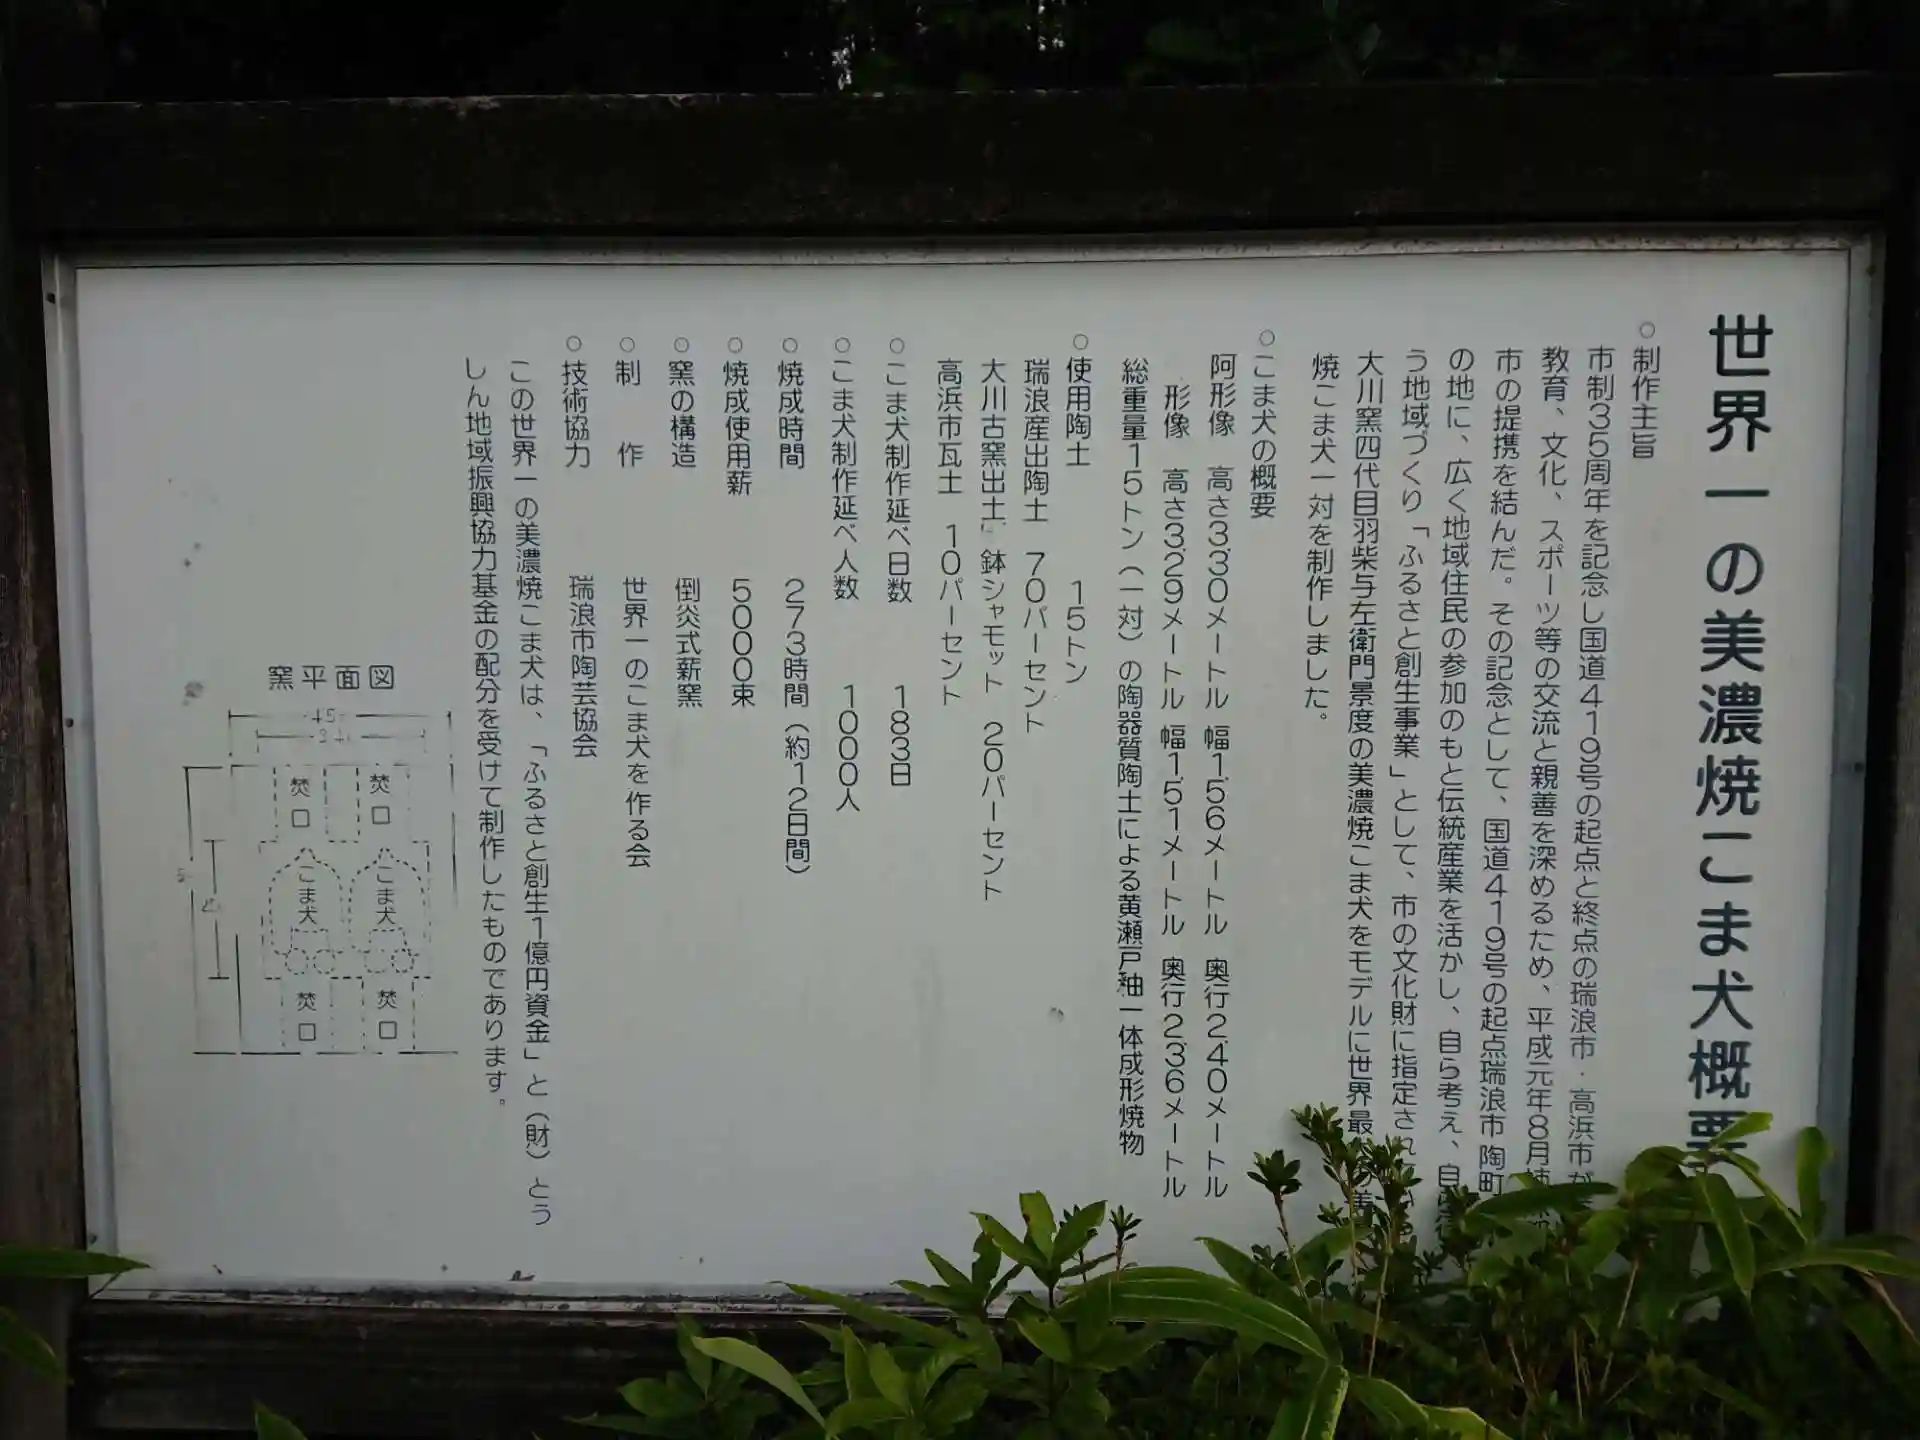 世界一の美濃焼こま犬概要
○制作主旨
市制35周年を記念し国道419号の起点と終点の瑞浪市・高浜市が
教育、文化、スポーツ等の交流と親善を深めるため、平成元年8月
市の提携を結んだ。その記念として、国道419号の起点瑞浪市陶町
の地に、広く地域住民の参加のもと伝統産業を活かし、自ら考え、自
う地域づくり「ふるさと創生事業」として、市の文化財に指定され
大川窯四代目羽柴与左衛門景度の美濃焼こま犬をモデルに世界最
焼こま犬一対を制作しました。
○こま犬の概要
阿形像 高さ3.30メートル 幅1.56メートル 奥行2.40メートル
形像 高さ3.29メートル 幅1.51メートル 奥行2.36メートル
総重量15トン(一対)の陶器質陶土による黄瀬戸釉一体成形焼物
○使用陶土 15トン
瑞浪産出陶土 70パーセント
大川古窯出土 鉢シャモット 20パーセント
高浜市瓦土 10パーセント
○こま犬制作延べ日数 183日
○こま犬制作延べ人数 1000人
○焼成時間 273時間(約12日間)
○焼成使用薪 5000束
○窯の構造 倒炎式薪窯
○制 作 世界一のこま犬を作る会
○技術協力 瑞浪市陶芸協会
この世界一の美濃焼こま犬は、「ふるさと創生1億円資金」と(財)とう
しん地域振興協力基金の配分を受けて制作したものであります。
窯平面図
焚口
焚口
こま犬
こま犬
焚口
焚口